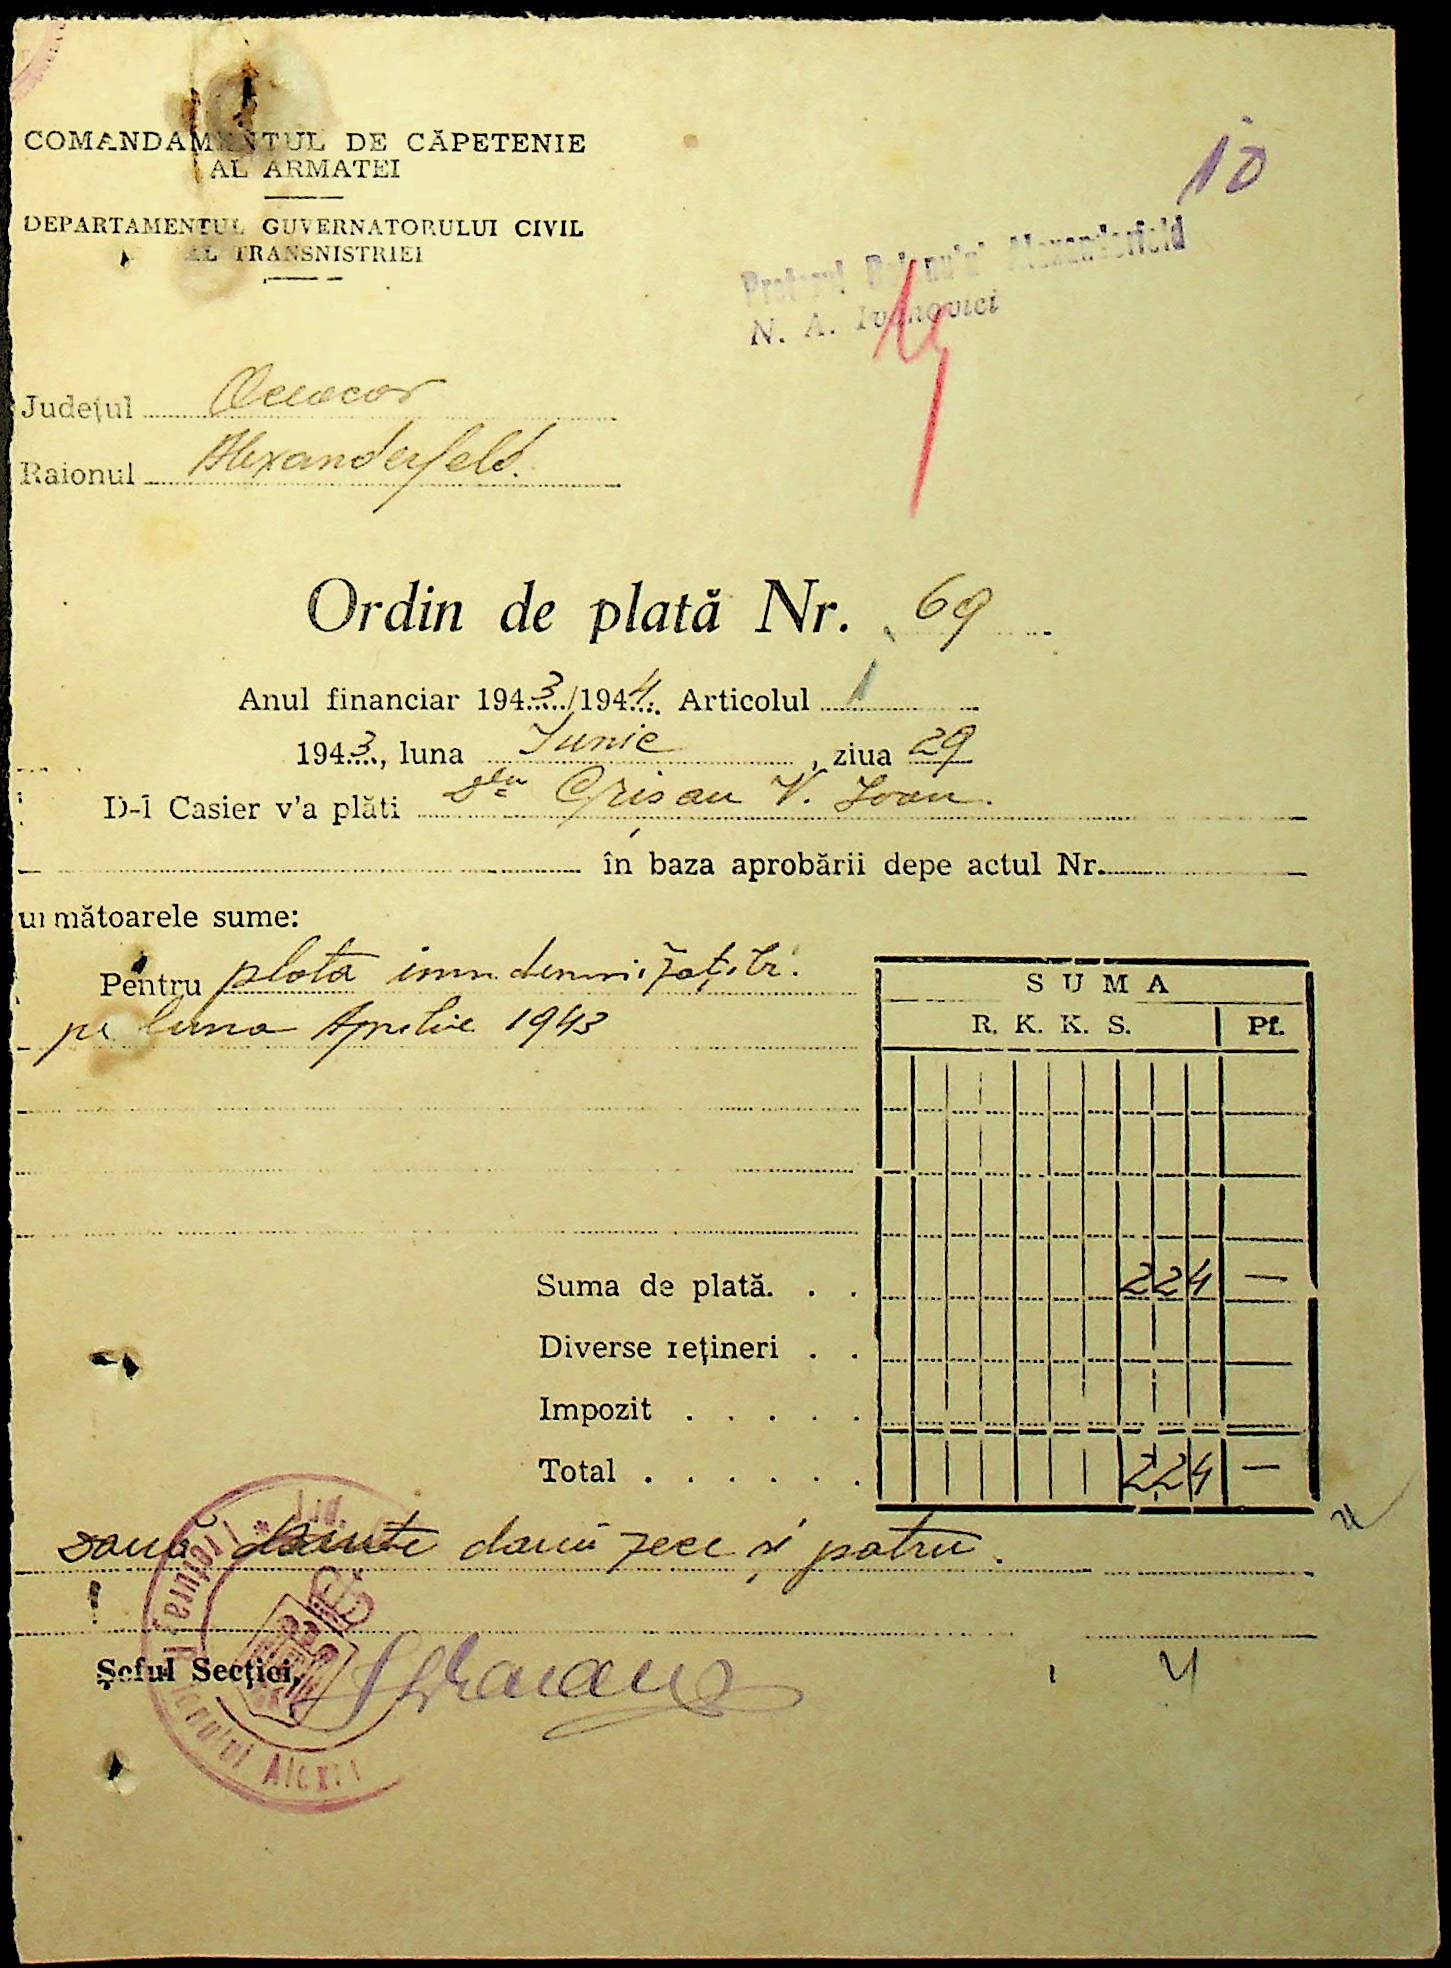 COMANDAMENTUL DE CĂPETENIE
AL ARMATEI
DEPARTAMENTUL GUVERNATORULUI CIVIL
AL TRANSNISTRIEI
10
Pretorul Raionului Alexanderfeld
N. A. Ivanovici
Judeţul Oceacov
Raionul Alexanderfeld.
Ordin de plată Nr. 69
Anul financiar 1943/1944. Articolul 1
1943, luna Iunie, ziua 29
D-l Casier v'a plăti Dlui Crisan V. Ioan.
în baza aprobării depe actul Nr.
următoarele sume:
Pentru plata
pe luna Aprilie 1943
SUMA
R. K. K. S. Pf.
Suma de plată. . . 224 —
Diverse reţineri . .
Impozit . . . . .
Total . . . . . . 224 —
două zeci şi patru.
Şeful Secţiei,
Pretura Raionului Alex
Jud.